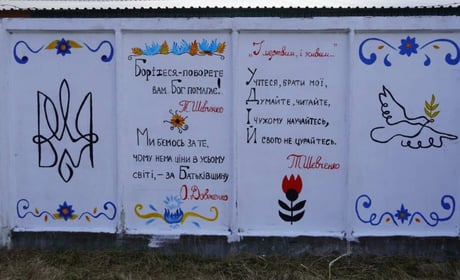 Борітеся–поборете
вам Бог помагає!
Т Шевченко
Ми бемось за те,
чому нема ціни в усьому
світі,–за Батьківщину
О. Довженко
"І мертвим, і живим..."
Учітеся, брати мої,
Думайте, читайте,
І чужому научайтесь,
Й свого не цурайтесь.
Т Шевченко